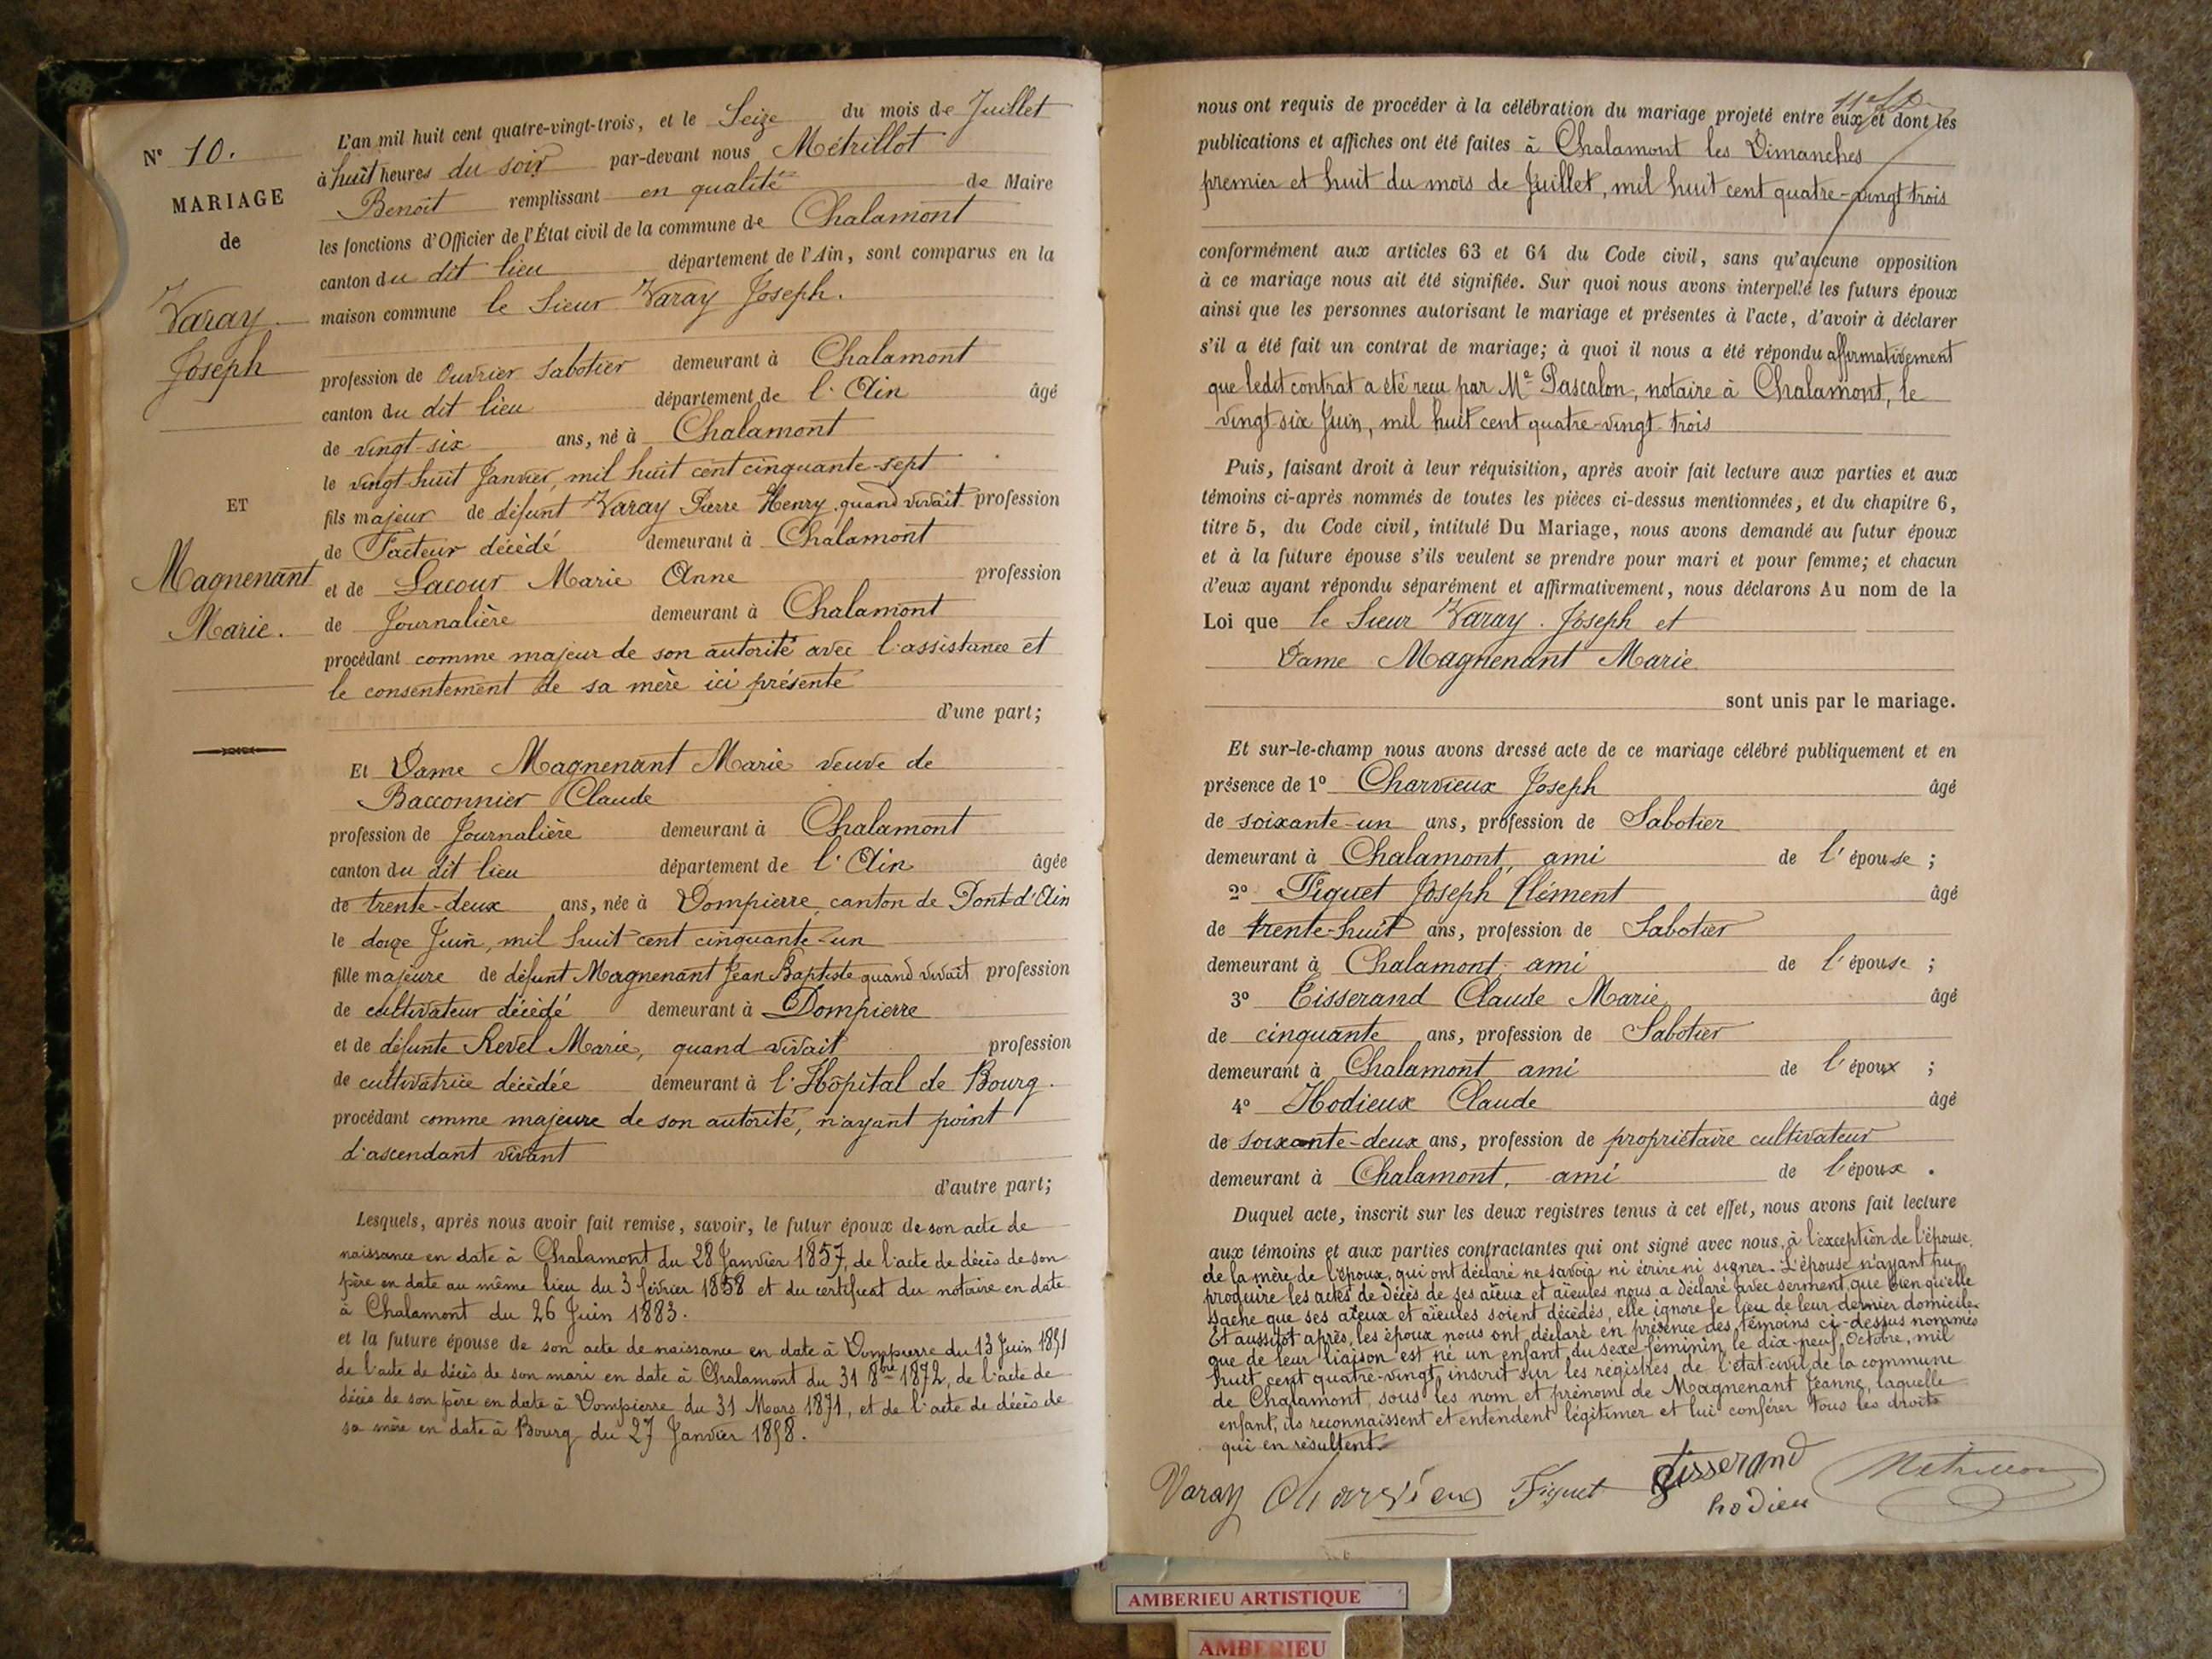 N° 10.
MARIAGE
de
Varay
Joseph
ET
Magnenant
Marie.
L'an mil huit cent quatre-vingt-trois, et le Seize du mois de Juillet
à huit heures du soir par-devant nous Métrillot
Benoît remplissant en qualité de Maire
les fonctions d'Officier de l'État civil de la commune de Chalamont
canton du dit lieu département de l'Ain, sont comparus en la
maison commune le Sieur Varay Joseph.
profession de Ouvrier Sabotier demeurant à Chalamont
canton du dit lieu département de l'Ain âgé
de vingt-six ans, né à Chalamont
le vingt-huit Janvier, mil huit cent cinquante-sept
fils majeur de défunt Varay Pierre Henry quand vivait profession
de Facteur décédé demeurant à Chalamont
et de Lacour Marie Anne profession
de Journalière demeurant à Chalamont
procédant comme majeur de son autorité avec l'assistance et
le consentement de sa mère ici présente
d'une part;
Et Dame Magnenant Marie veuve de
Bacconnier Claude
profession de Journalière demeurant à Chalamont
canton du dit lieu département de l'Ain âgée
de trente-deux ans, née à Dompierre, canton de Pont-d'Ain
le douze Juin, mil huit cent cinquante-un
fille majeure de défunt Magnenant Jean Baptiste quand vivait profession
de cultivateur décédé demeurant à Dompierre
et de défunte Revel Marie, quand vivait profession
de cultivatrice décédée demeurant à l'Hôpital de Bourg.
procédant comme majeure de son autorité, n'ayant point
d'ascendant vivant
d'autre part;
Lesquels, après nous avoir fait remise, savoir, le futur époux de son acte de
naissance en date à Chalamont du 28 Janvier 1857, de l'acte de décès de son
père en date au même lieu du 3 février 1858 et du certificat du notaire en date
à Chalamont du 26 Juin 1883.
et la future épouse de son acte de naissance en date à Dompierre du 13 Juin 1851
de l'acte de décès de son mari en date à Chalamont du 31 8bre 1872, de l'acte de
décès de son père en date à Dompierre du 31 Mars 1871, et de l'acte de décès de
sa mère en date à Bourg du 27 Janvier 1858.
nous ont requis de procéder à la célébration du mariage projeté entre eux et dont les
publications et affiches ont été faites à Chalamont les Dimanches
premier et huit du mois de Juillet, mil huit cent quatre-vingt trois
conformément aux articles 63 et 64 du Code civil, sans qu'aucune opposition
à ce mariage nous ait été signifiée. Sur quoi nous avons interpellé les futurs époux
ainsi que les personnes autorisant le mariage et présentes à l'acte, d'avoir à déclarer
s'il a été fait un contrat de mariage; à quoi il nous a été répondu affirmativement
que ledit contrat a été reçu par Me Pascalon, notaire à Chalamont, le
vingt-six Juin, mil huit cent quatre-vingt-trois
Puis, faisant droit à leur réquisition, après avoir fait lecture aux parties et aux
témoins ci-après nommés de toutes les pièces ci-dessus mentionnées, et du chapitre 6,
titre 5, du Code civil, intitulé Du Mariage, nous avons demandé au futur époux
et à la future épouse s'ils veulent se prendre pour mari et pour femme; et chacun
d'eux ayant répondu séparément et affirmativement, nous déclarons Au nom de la
Loi que le Sieur Varay Joseph et
Dame Magnenant Marie
sont unis par le mariage.
Et sur-le-champ nous avons dressé acte de ce mariage célébré publiquement et en
présence de 1° Charvieux Joseph âgé
de soixante-un ans, profession de Sabotier
demeurant à Chalamont, ami de l'épouse ;
2° Figuet Joseph Clément âgé
de trente-huit ans, profession de Sabotier
demeurant à Chalamont, ami de l'épouse ;
3° Tisserand Claude Marie, âgé
de cinquante ans, profession de Sabotier
demeurant à Chalamont ami de l'époux ;
4° Hodieux Claude âgé
de soixante-deux ans, profession de propriétaire cultivateur
demeurant à Chalamont, ami de l'époux .
Duquel acte, inscrit sur les deux registres tenus à cet effet, nous avons fait lecture
aux témoins et aux parties contractantes qui ont signé avec nous, à l'exception de l'épouse,
de la mère de l'époux, qui ont déclaré ne savoir ni écrire ni signer. L'épouse n'ayant pu
produire les actes de décès de ses aïeux et aïeules nous a déclaré avec serment, que bien qu'elle
sache que ses aïeux et aïeules soient décédés, elle ignore le lieu de leur dernier domicile.
Et aussitôt après, les époux nous ont déclaré en présence des témoins ci-dessus nommés
que de leur liaison est né un enfant du sexe féminin, le dix-neuf Octobre, mil
huit cent quatre-vingt, inscrit sur les registres de l'état civil de la commune
de Chalamont, sous les nom et prénom de Magnenant Jeanne, laquelle
enfant, ils reconnaissent et entendent légitimer et lui conférer tous les droits
qui en résultent.
Varay Charvieux Figuet Tisserand
hodieu
AMBERIEU ARTISTIQUE
AMBERIEU